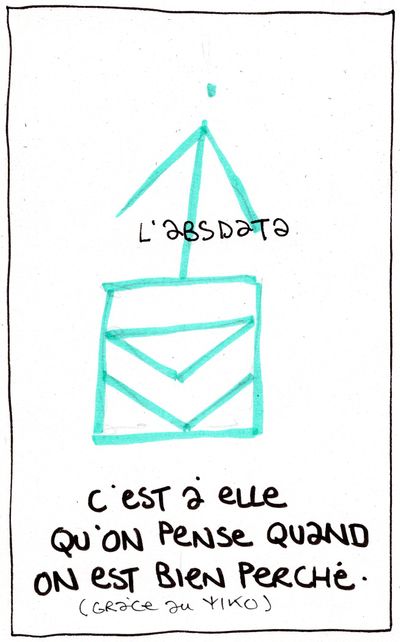 L'aBSDaTa
C'EST à ELLE
QU'ON PENSE QUAND
ON EST BIEN PERCHÉ.
(GRâCE au YIKO)